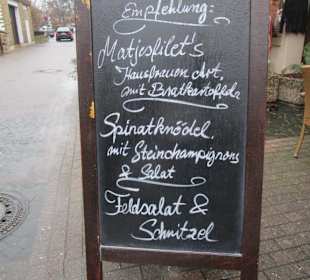 Empfehlung:
Matjesfilet's
Hausfrauen Art,
mit Bratkartoffeln
Spinatknödel,
mit Steinchampignons
& Salat
Feldsalat &
Schnitzel